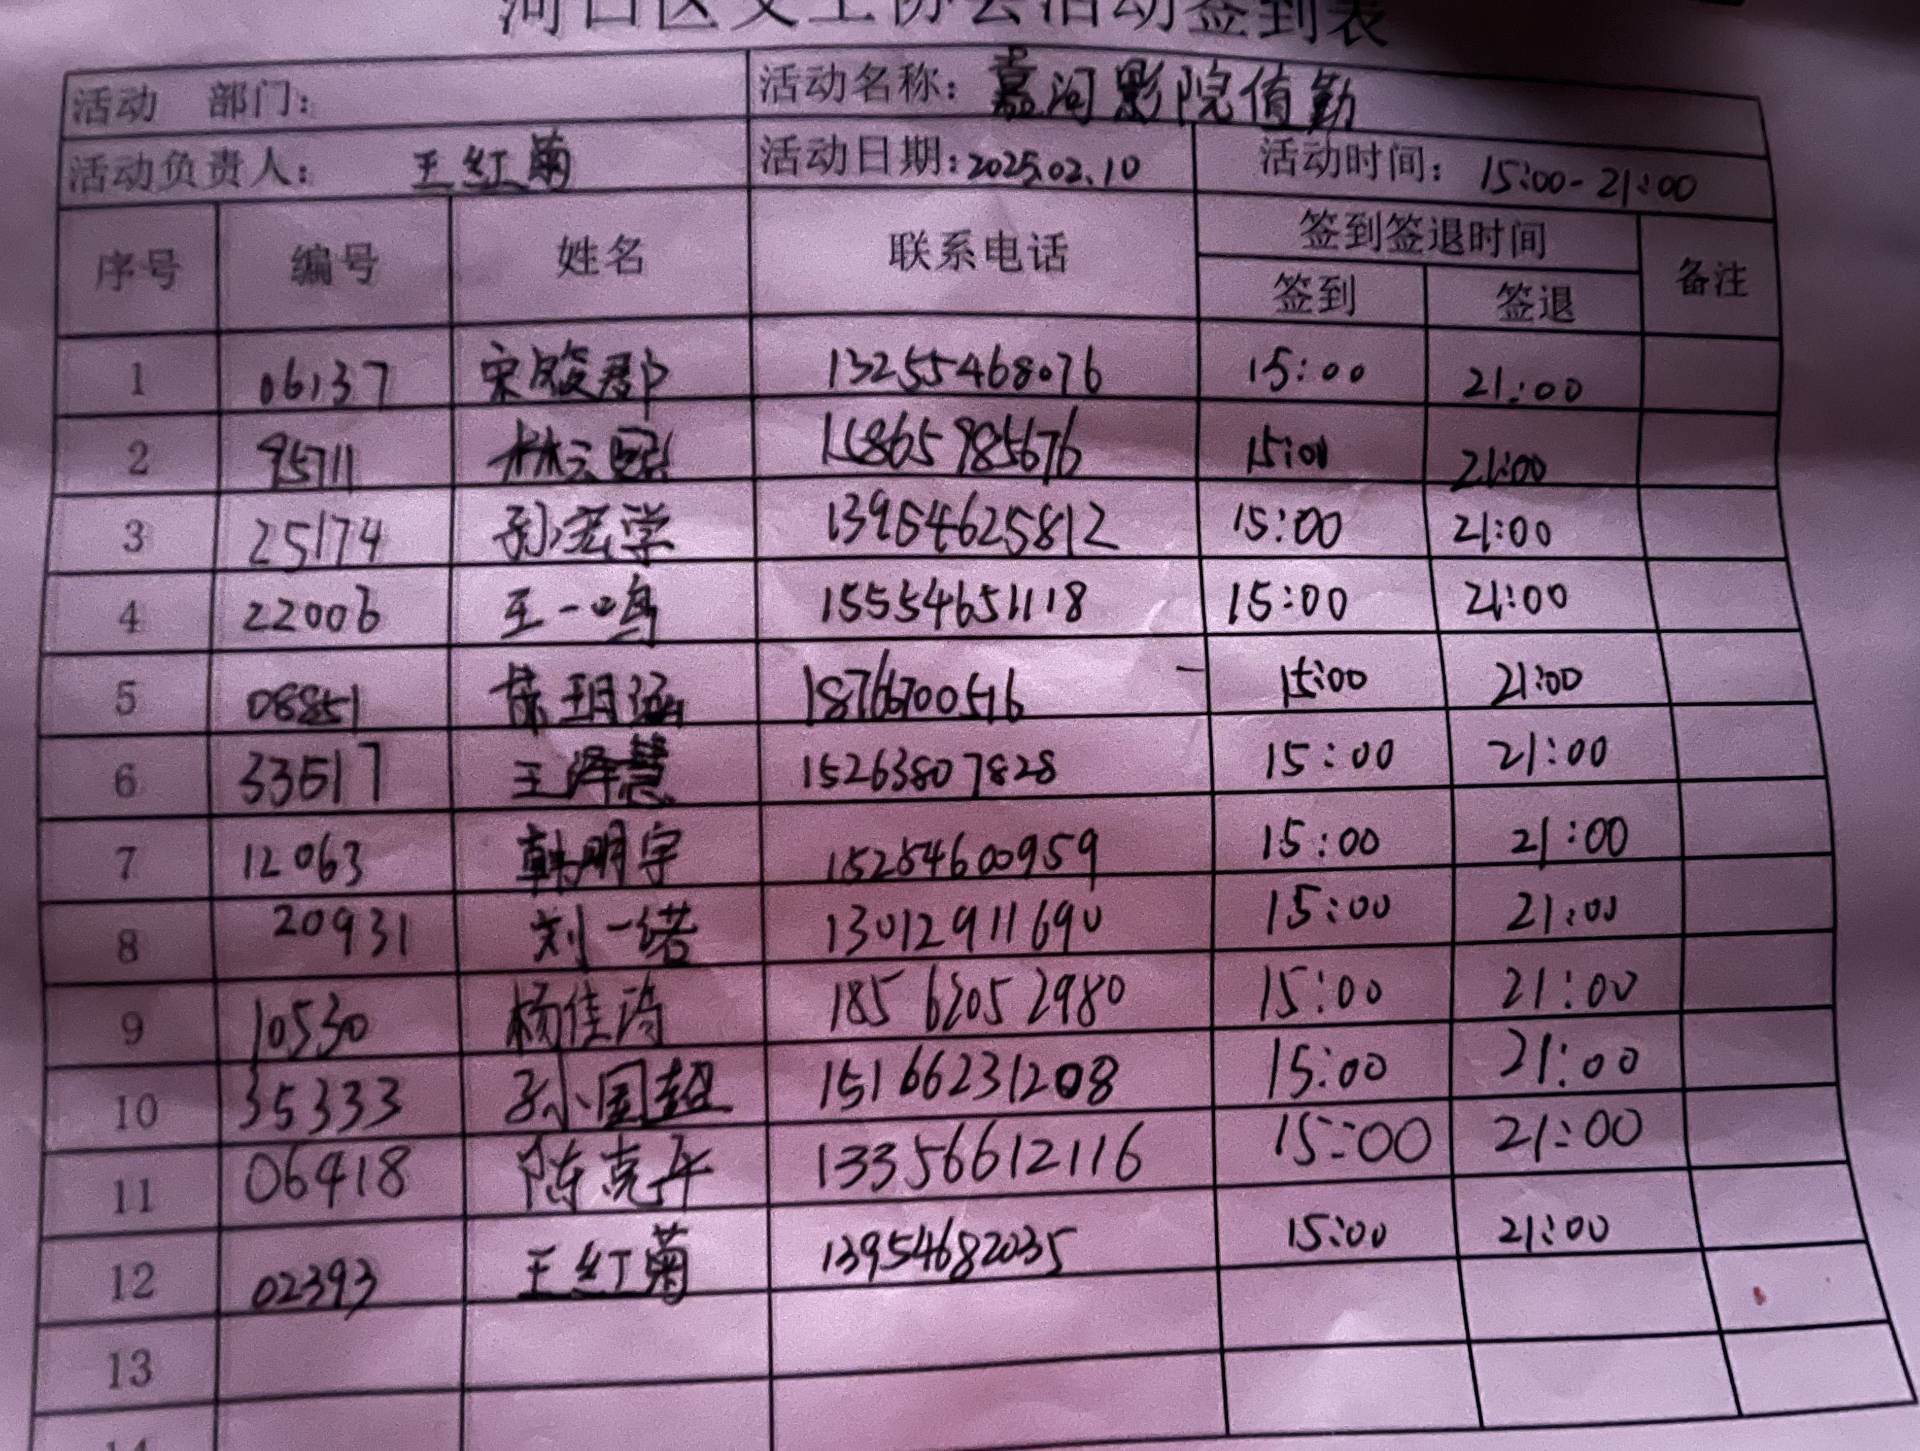 河口区义工协会活动签到表
活动 部门: 活动名称: 嘉河影院值勤
活动负责人: 王红菊 活动日期: 2025.02.10 活动时间: 15:00-21:00
序号 编号 姓名 联系电话 签到签退时间 备注
签到 签退
1 06137 宋骏郡 13255468076 15:00 21:00
2 95711 林云 15865985676 15:00 21:00
3 25174 孙宏学 13954625812 15:00 21:00
4 22006 王一鸣 15554651118 15:00 21:00
5 08851 玥涵 18766700516 15:00 21:00
6 33517 王泽慧 15263807828 15:00 21:00
7 12063 韩明宇 15254600959 15:00 21:00
8 20931 刘一诺 13012911690 15:00 21:00
9 10530 杨佳 18562052980 15:00 21:00
10 35333 孙国超 15166231208 15:00 21:00
11 06418 陈克 13356612116 15:00 21:00
12 02393 王红菊 13954682035 15:00 21:00
13